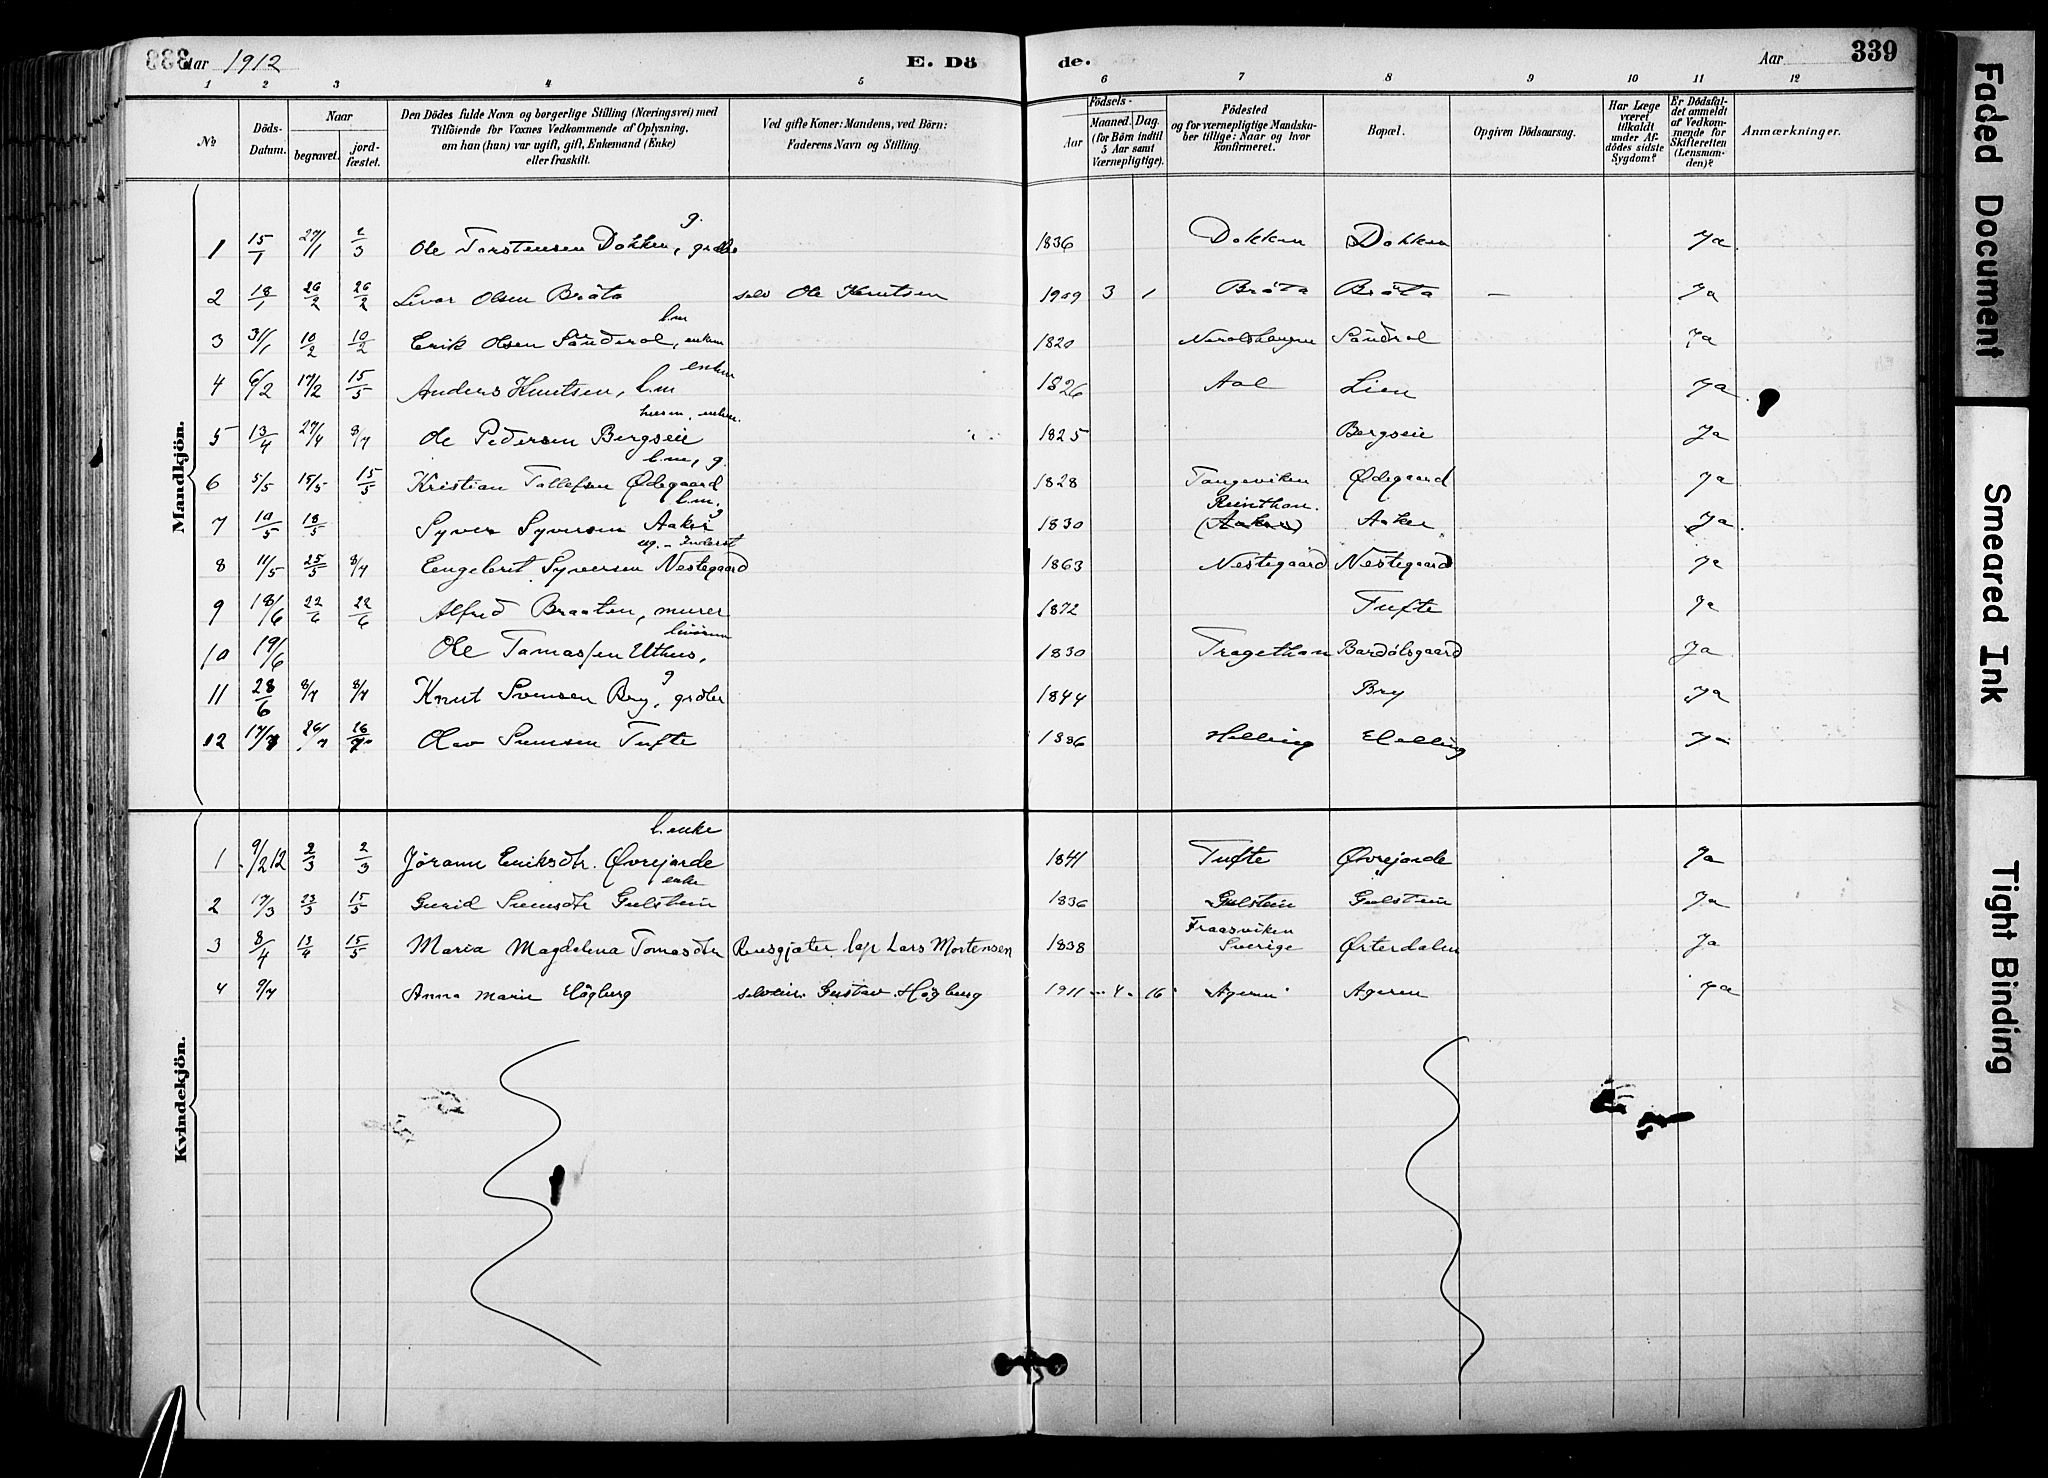 Aar 1912 E. Dö de. Aar 339
1 2 3 4 5 6 7 8 9 10 11 12
No
Döds-Datum.
Naar
begravet.
jord-fæstet.
Den Dödes fulde Navn og borgerlige Stilling (Næringsvei) med
Tilföiende for Voxnes Vedkommende af Oplysning,
om han (hun) var ugift, gift, Enkemand (Enke)
eller fraskilt.
Ved gifte Koner: Mandens, ved Börn:
Faderens Navn og Stilling.
Födsels-
Aar
Maaned. Dag.
(for Börn indtil
5 Aar samt
Værnepligtige).
Födested
og for værnepligtige Mandska-
ber tillige: Naar og hvor
konfirmeret.
Bopæl.
Opgiven Dödsaarsag.
Har Læge
været
tilkaldt
under Af-
dödes sidste
Sygdom?
Er Dödsfal-
det anmeldt
af Vedkom-
mende for
Skifteretten
(Lensman-
den)?
Anmærkninger.
Mandkjön.
1 15/1 27/1 2/3 Ole Torstensen Dokken, g. grdbr 1836 Dokken Dokken Ja
2 18/1 26/2 26/2 Livar Olsen Bråta selv Ole Knutsen 1909 3 1 Bråta Bråta – Ja
3 31/1 10/2 10/2 Erik Olsen Sønderol, l.m enkem 1820 Sündrol Ja
4 6/2 17/2 15/5 Anders Knutsen, l.m enkem 1826 Aal Lien Ja
5 13/4 27/4 8/7 Ole Pedersen Bergseie husm. enkem. 1825 Bergseie Ja
6 5/5 15/5 Kristian Tollefsen Ødegaard l.m, g. 1828 Tangeviken Ødegaard Ja
7 10/5 18/5 Syver Syversen Aaker l.m. g 1830 Reinthon. (Aaker) Aaker Ja
8 11/5 25/5 8/7 Engebret Syversen Nestegaard ug. - Inderst 1863 Nestegaard Nestegaard Ja
9 18/6 22/6 22/6 Alfred Braaten, murer 1872 Tufte Ja
10 19/6 Ole Tomassen Uthus, 1830 Tragethon Bardølsgaard Ja
11 28/6 8/7 8/7 Knut Svensen Bry, g grdbr 1844 Bry Ja
12 26/7 Olav Svensen Tufte 1886 Helling Helling Ja
Kvindekjön.
1 9/2 12 2/3 2/3 Jørann Eriksdtr. Øvrejorde l. enke 1841 Tufte Øvrejorde Ja
2 17/3 23/3 15/5 Gurid Svensdtr Gulstein enke 1836 Gulstein Gulstein Ja
3 8/4 13/4 15/5 Maria Magdalena Tomasdtr Rensgjæter lap Lars Mortensen 1838 Fraasviken Sverige Ørterdalen Ja
4 9/7 Anna Marie Högberg Gustav Högberg 1911 4 16 Ageren Ageren Ja
Faded Document
Smeared Ink
Tight Binding